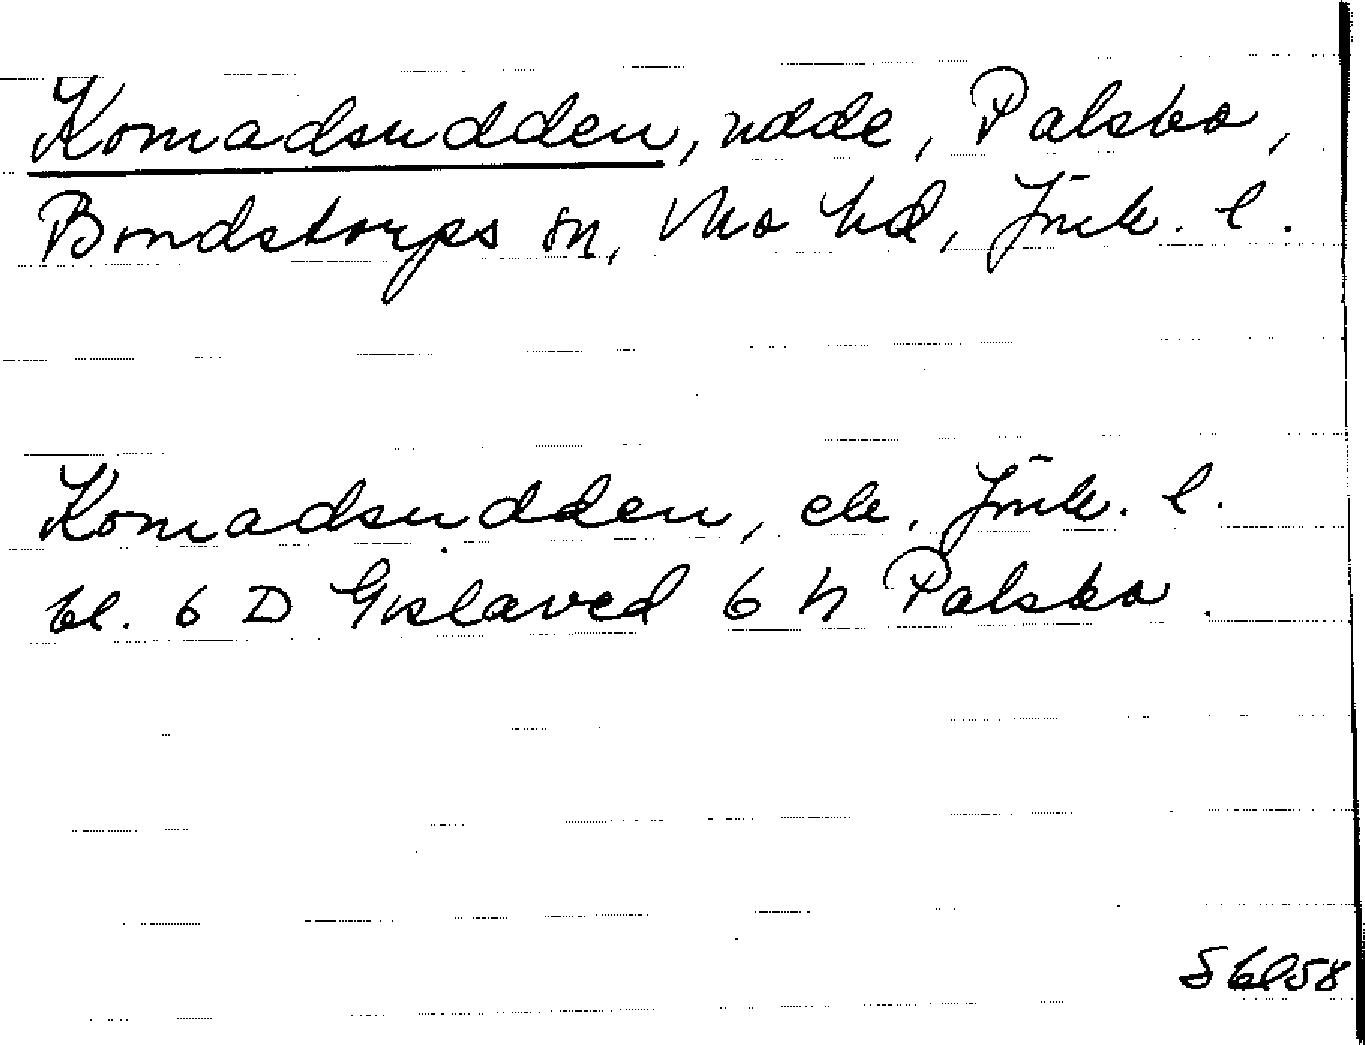 Komadsudden, udde, Palsbo,
Bondstorps sn, Mo hd, Jönk. l.
Komadsudden, ek. Jönk. l.
bl. 6 D Gislaved 6 h Palsbo.
Sbl58